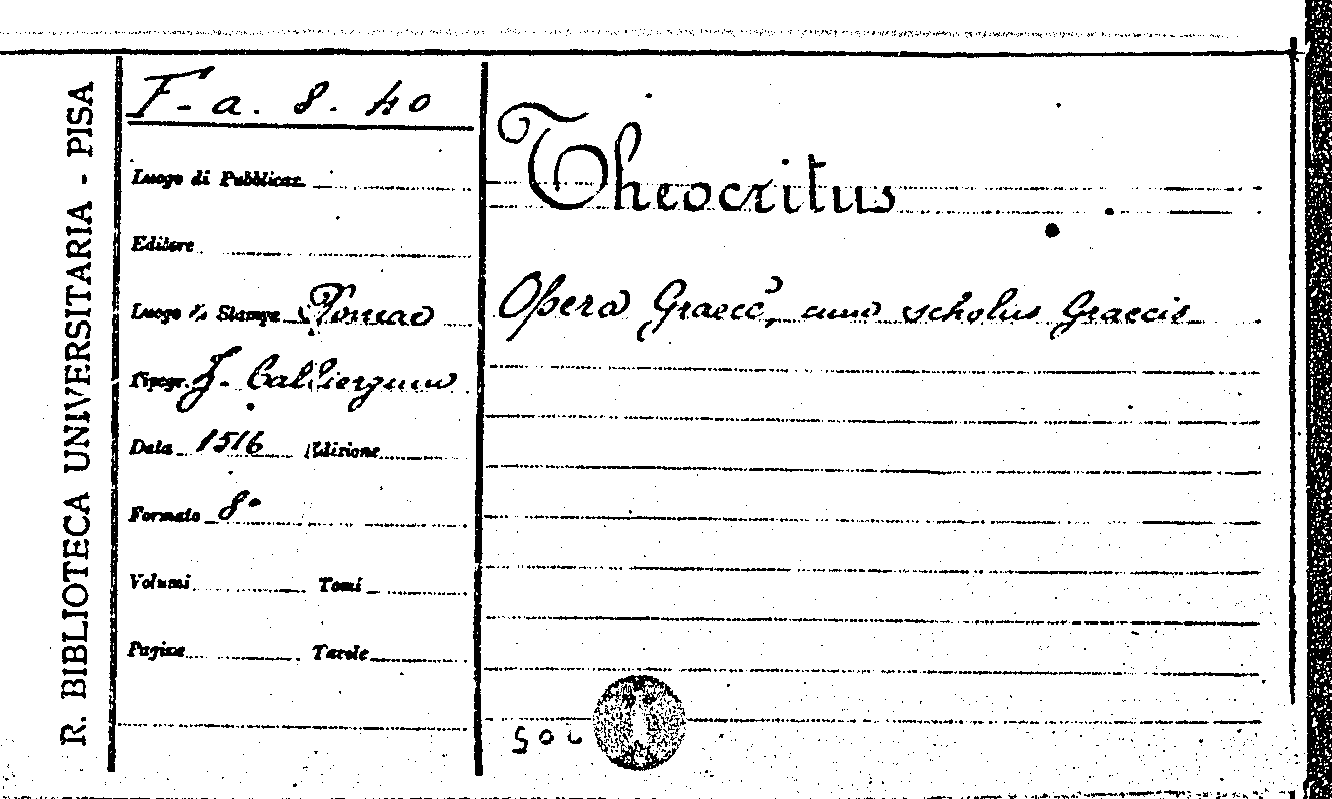 R. BIBLIOTECA UNIVERSITARIA - PISA
F. a. 8. 40
Luogo di Pubblicaz.
Editore
Luogo di Stampa Romae
Tipogr. J. Calliergum
Data 1516 Edizione
Formato 8°
Volumi Tomi
Pagine Tavole
Theocritus
Opera Graece, cum scholiis Graecis